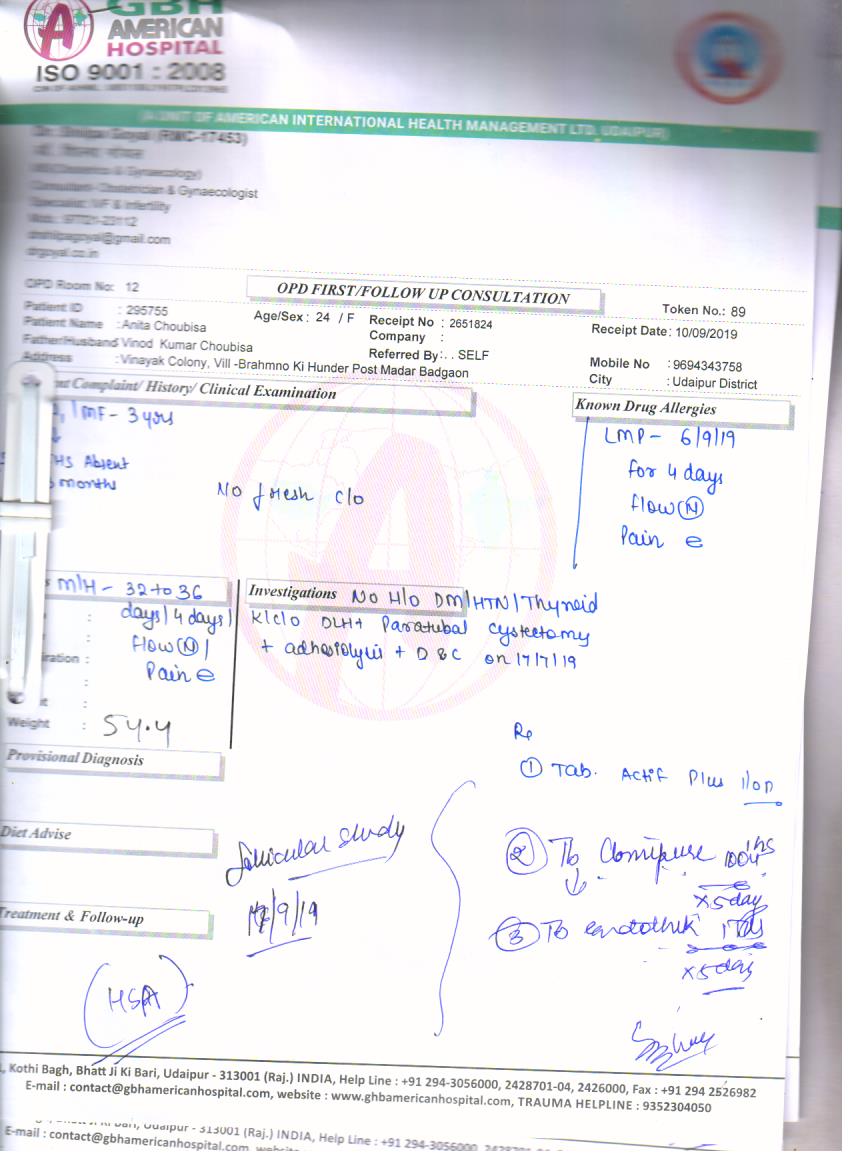 GBH
AMERICAN
HOSPITAL
ISO 9001 : 2008
(A UNIT OF AMERICAN INTERNATIONAL HEALTH MANAGEMENT LTD. UDAIPUR)
(RMC-17453)
Consultant- Obstetrician & Gynaecologist
Specialist: IVF & Infertility
drgoyal.co.in
OPD Room No: 12
OPD FIRST/FOLLOW UP CONSULTATION
Token No.: 89
Patient ID : 295755
Age/Sex : 24 / F
Receipt No : 2651824
Receipt Date: 10/09/2019
Patient Name : Anita Choubisa
Company :
Father/Husband Vinod Kumar Choubisa
Referred By: . . SELF
Mobile No : 9694343758
Address : Vinayak Colony, Vill -Brahmno Ki Hunder Post Madar Badgaon
City : Udaipur District
Complaint/ History/ Clinical Examination
Known Drug Allergies
MF - 3 yrs
LMP - 6/9/19
HS Absent
for 4 days
months
No fresh c/o
flow (N)
Pain e
M/H - 32 to 36
Investigations No H/o DM/HTN/Thyroid
days/4 days/
K/c/o DLH+ Paratubal cystectomy
flow (N)/
+ adhesiolysis + D&C on 17/7/19
Pain e
Weight : 54.4
Rp
Provisional Diagnosis
① Tab. Actif Plus 1/OD
Diet Advise
follicular study
② Tb Clomipure 100 1hs
↓
x 5 day
17/9/19
Treatment & Follow-up
③ Tb endothik 1 Tds
x 5 day
HSA
, Kothi Bagh, Bhatt Ji Ki Bari, Udaipur - 313001 (Raj.) INDIA, Help Line : +91 294-3056000, 2428701-04, 2426000, Fax : +91 294 2526982
E-mail : contact@gbhamericanhospital.com, website : www.ghbamericanhospital.com, TRAUMA HELPLINE : 9352304050
Udaipur - 313001 (Raj.) INDIA, Help Line : +91 294-3056000
E-mail : contact@gbhamericanhospital.com